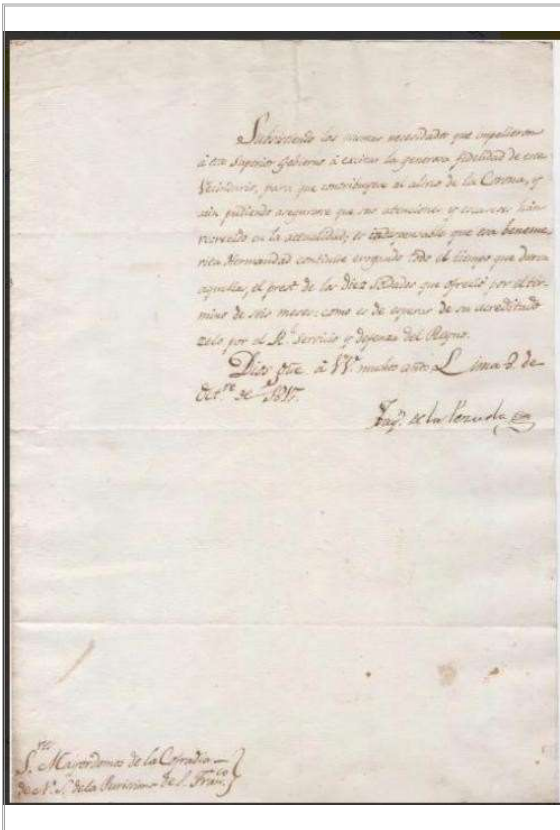 Subsistiendo las mismas necesidades que impelieron
á este Superior Gobierno á excitar la generosa fidelidad de este
Vecindario, para que contribuyese al alivio de la Corona, y
aun pudiendo asegurarse que sus atenciones y escaseses han
recrecido en la actualidad; es indispensable que esa beneme-
rita Hermandad continúe erogando todo el tiempo que duren
aquellas, el prest de los diez Soldados que ofreció por el tér-
mino de seis meses: como es de esperar de su acreditado
zelo por el Rl. Servicio y defensa del Reyno.
Dios gue. á VV.s muchos años Lima 8 de
Oct.re de 1817.
Joaqn. de la Pezuela
S.res Mayordomos de la Cofradia
de Na. Sa. de la Purisima de S. Franco.